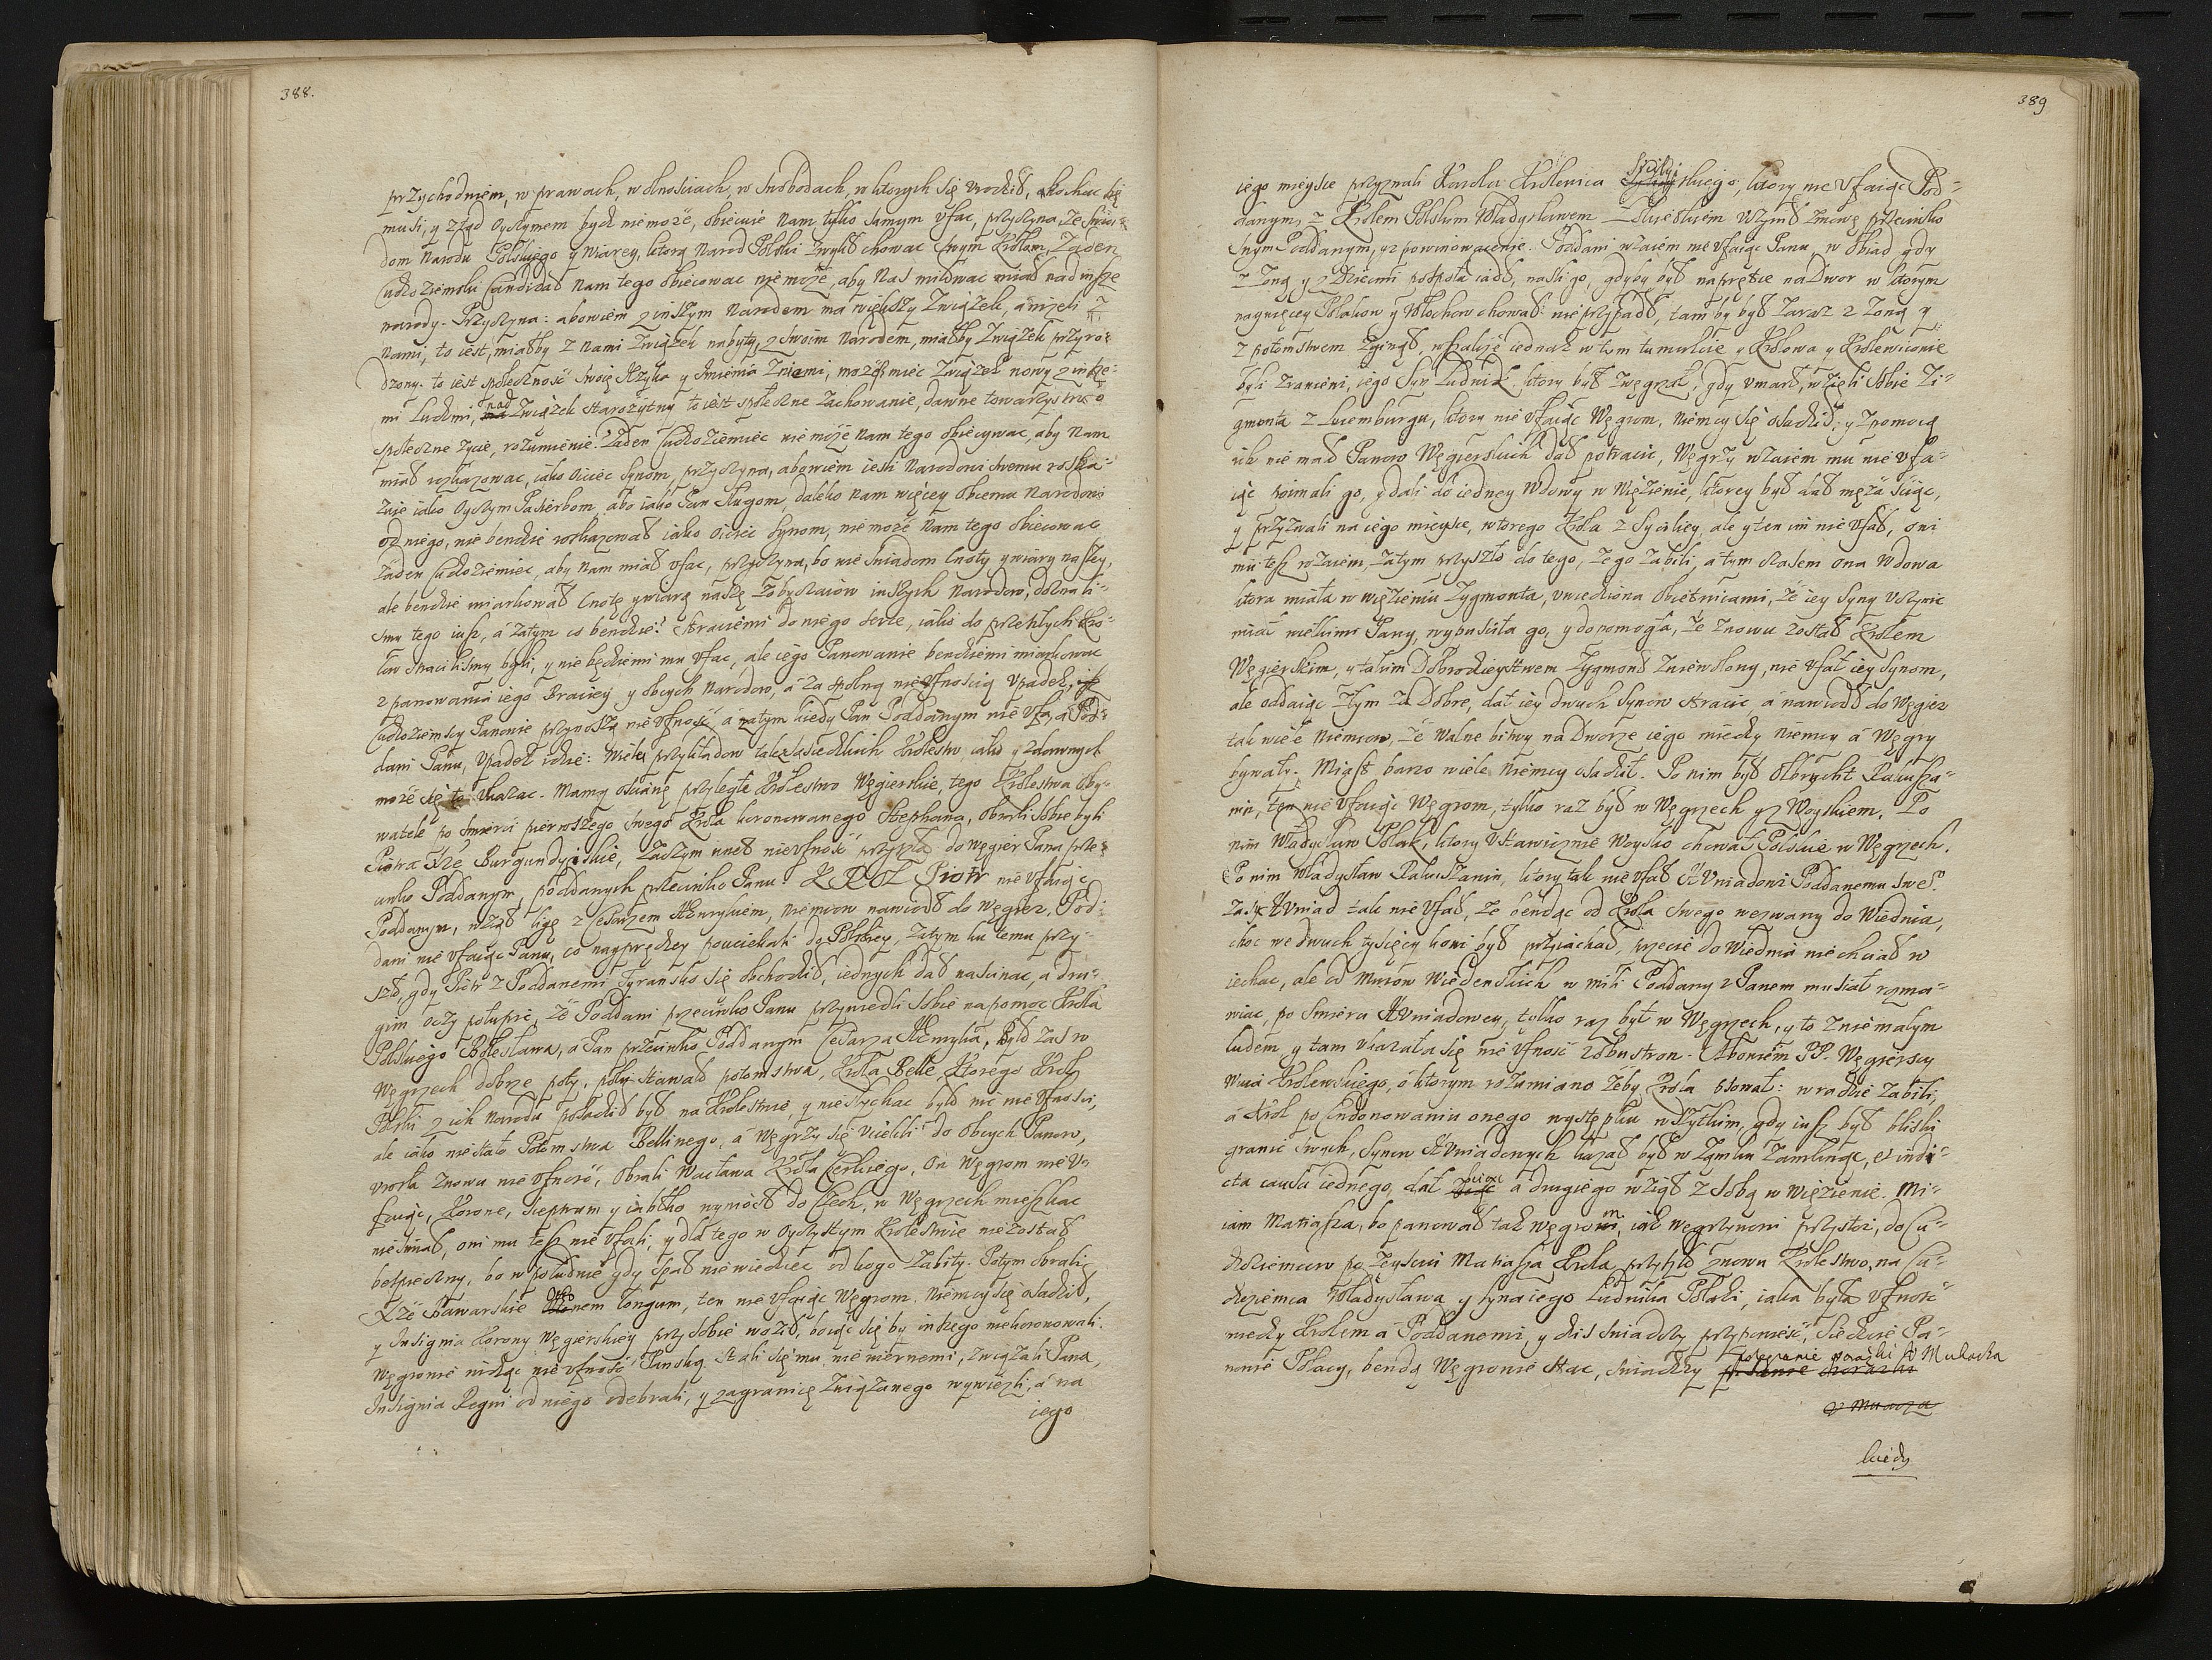 388.
przychodniem, w prawach, w wolnosciach, w Swobodach, w ktorych się vrodził, kochac się
musi, y ztąd Oyczymem bydz niemoże, obiecuie nam tylko samym vfac, przyczyna, że swia-
dom Narodu Polskiego y Wiarey, ktorą Narod Polski zwykł chowac swym Krolom, Żaden
Cudzoziemski Candidat nam tego obiecowac nie może, aby Nas miłowac miał nad insze
narody. Przyczyna: abowiem z inszym Narodem ma większy Związek, aniżeli z
Nami, to iest, miałby z Nami Związek nabyty, z swoim Narodem, miałby Związek przyro-
dzony. to iest społecznosć swoię Ięzyka y Imienia z niemi, może miec Związek nowy z insze-
mi Ludzmi, nad Związek starożytny to iest społeczne zachowanie, dawne towarzystwo
społeczne życie, rozumienie? Żaden Cudzoziemiec nie może Nam tego obiecywac, aby Nam
miał rozkazowac, iako Ociec Synom, przyczyna, abowiem iesli Narodowi swemu roska-
zuie iako Oyczym Pasierbom, abo iako Pan Sługom, daleko Nam więcey obiema Narodowi
od niego, nie bendzie roskazował iako Ociec Synom, nie może Nam tego obiecowac
Żaden Cudzoziemiec, aby Nam miał vfac, przyczyna, bo nie swiadom Cnoty y wiary naszey,
ale bendzie miarkował Cnotę y wiarę naszę z obyczaiow inszych Narodow, doznali-
smy tego iusz, á zatym co bendzie? Straciemi do niego serce, iako do przeszłych Kro-
low stracilismy byli, y nie będziemi mu vfac, ale iego Panowanie bendziemi miarkowac
z panowania iego Braciey, y obcych Narodow, á za spolną nievfnoscią Vpadek,
Cudzoziemscy Panowie przynoszą nie vfnosć, á zatym kiedy Pan Poddanym nie vfa, á Pod-
dani Panu, Vpadek idzie: Wiele przykładow tak z sąsiedzkich Krolestw, iako y z domowych
może się to vkazac. Mamy oscianę przyległe Krolestwo Węgierskie, tego Krolestwa oby-
watele po smierci pierwszego swego Krola koronowanego Stephana, obrali sobie byli
Piotra Xże Burgundyiskie, Zaczym wnet nievfnosć przyszła do Węgier Pana prze-
ciwko Poddanym, poddanych przeciwko Panu. KROL Piotr nie vfaiąc
Poddanym, wziął ligę z Cesarzem Henrykiem, Niemcow nawiodł do Węgier, Pod-
dani nie vfaiąc Panu, co nayprędzey pouciekali do Polskiey, Zatym ku temu przy-
szło, gdy Piotr z Poddanemi Tyransko się obchodził, iednych dał nascinac, á dru-
gim oczy połupic, że Poddani przeciwko Panu przywiedli sobie na pomoc Krola
Polskiego Bolesława, á Pan przeciwko Poddanym Cesarza Henryka, było zas w
Węgrzech dobrze poty, poky stawało potomstwa, Krola Belle, Ktorego Krol
Polski z ich Narodu posadził był na Krolestwie, y nie słychac było nic nie vfnosci,
ale iako nie stało Potomstwa Bellinego, á Węgrzy się vciekli do obcych Panow,
vrosła znowu nie vfnosć, Obrali Wacława Krola Czeskiego, On Węgrom nie v-
faiąc, Koronę, Sceptrum y iabłko wyniosł do Czech, w Węgrzech mieszkac
nie smiał, oni mu tesz nie vfali, y dla tego w Oyczystym Krolestwie nie został
bespieczny, bo w południe gdy spał niewiedziec od kogo zabity. Potym obrali
Xże Bawarskie Othonem longum, ten nie vfaiąc Węgrom, Niemcy się osadził,
y Insignia Korony Węgierskiey przy sobie woził, boiąc się by inszego nie koronowali.
Węgrowie widząc nie vfnosć Panską. stali się mu niewiernemi, związali Pana,
Insignia Regni od niego odebrali, y zagranicę związanego wywiezli, á na
iego
389
iego mieysce przyzwali Karola Krolewica Sycilyiskiego, ktory nie vfaiąc Pod-
danym, z Krolem Polskim Władysławem Łokietkiem vczynił zmowę przeciwko
swym Poddanym, y z powinowacenie. Poddani wzaiem nie vfaiąc Panu, w obiad gdy
z Żoną y z Dziecmi pospołu iadł, naszli go, gdyby był naprętce na Dwor w ktorym
naywięcey Polakow y Włochow chował: nie przypadł, tam by był zaraz z Żoną y
z potomstwem zginął, wszakże iednak w tym tumulcie y Krolowa y Krolewicowie
byli zranieni, iego Syn Ludwik, ktory był Zwęgrzał, gdy vmarł, wzięli sobie Zi-
gmonta z Lucemburga, ktory nie vfaiąc Węgrom, Niemcy się osadził, y z pomocą
ich nie mało Panow Węgierskich dał potracic, Węgrzy wzaiem mu nie vfa-
iąc poimali go, y dali do iedney Wdowy w więzienie, ktorey był dał męża sciąc,
y przyzwali na iego mieysce, wtorego Krola z Syciliey, ale y ten im nie vfał, oni
mu tesz wzaiem, Zatym przyszło do tego, że go zabili, a tym czasem ona Wdowa
ktora miała w więzieniu Zygmonta, vwiedziona obietnicami, że iey Syny vczynic
miał wielkimi Pany, wypusciła go, y dopomogła, że znowu został Krolem
Węgierskim, y takim Dobrodzieystwem Zygmont zniewolony, nie vfał iey Synom,
ale oddaiąc złym za Dobre, dał iey dwuch Synow stracic, á nawiodł do Węgier
tak wiele Niemcow, że Walne bitwy na dworze iego miedzy Niemcy á Węgry
bywały. Miast barzo wiele Niemcy osadził. Po nim był Olbrycht Rakusza-
nin, ten nie vfaiąc Węgrom, tylko raz był w Węgrzech y z Woyskiem. Po
nim Władysław Polak, ktory vstawicznie Woysko chował Polskie w Węgrzech.
Po nim Władysław Rakuszanin, ktory tak nie vfał Huniadowi Poddanemu sweo.
Zas Huniad tak nie vfał, że bendąc od Krola swego wezwany do Wiednia,
choc we dwuch tysięcy koni był przyiachał, przecię do Wiednia nie chciał w
iechac, ale od murow Wiedenskich w mili Poddany z Panem musiał rozma-
wiac, po smierci Huniadowey, tylko raz był w Węgrzech, y to z niemałym
ludem y tam vkazała się nie vfnosć z obu stron. Abowiem PP. Węgierscy
Wuia Krolewskiego, o ktorym rozumiano żeby Krola psował: w radzie zabili,
á Krol po Condonowaniu onego występku wszytkim, gdy iusz był bliski
granic swych, Synow Huniadowych kazał był w Zamku Zamknąc, et indi-
cta causa iednego, dał sciąc á drugiego wziął z sobą w więzienie. Mi-
iam Matiasza, bo panował tak Węgrom, iak Węgrzynowi przystoi, do Cu-
dzoziemcow po zesciu Matiasza Krola przyszło znowu Krolestwo, na Cu-
dzoziemca Władysława y syna iego Ludwika Polaki, iaka była vfnosć
miedzy Krolem á Poddanemi, y dzis swiadczy przypowiesć, Siedzcie Pa-
nowie Polacy, bendą Węgrowie stac, swiadczy przegranie porażki v Muhacza
kiedy